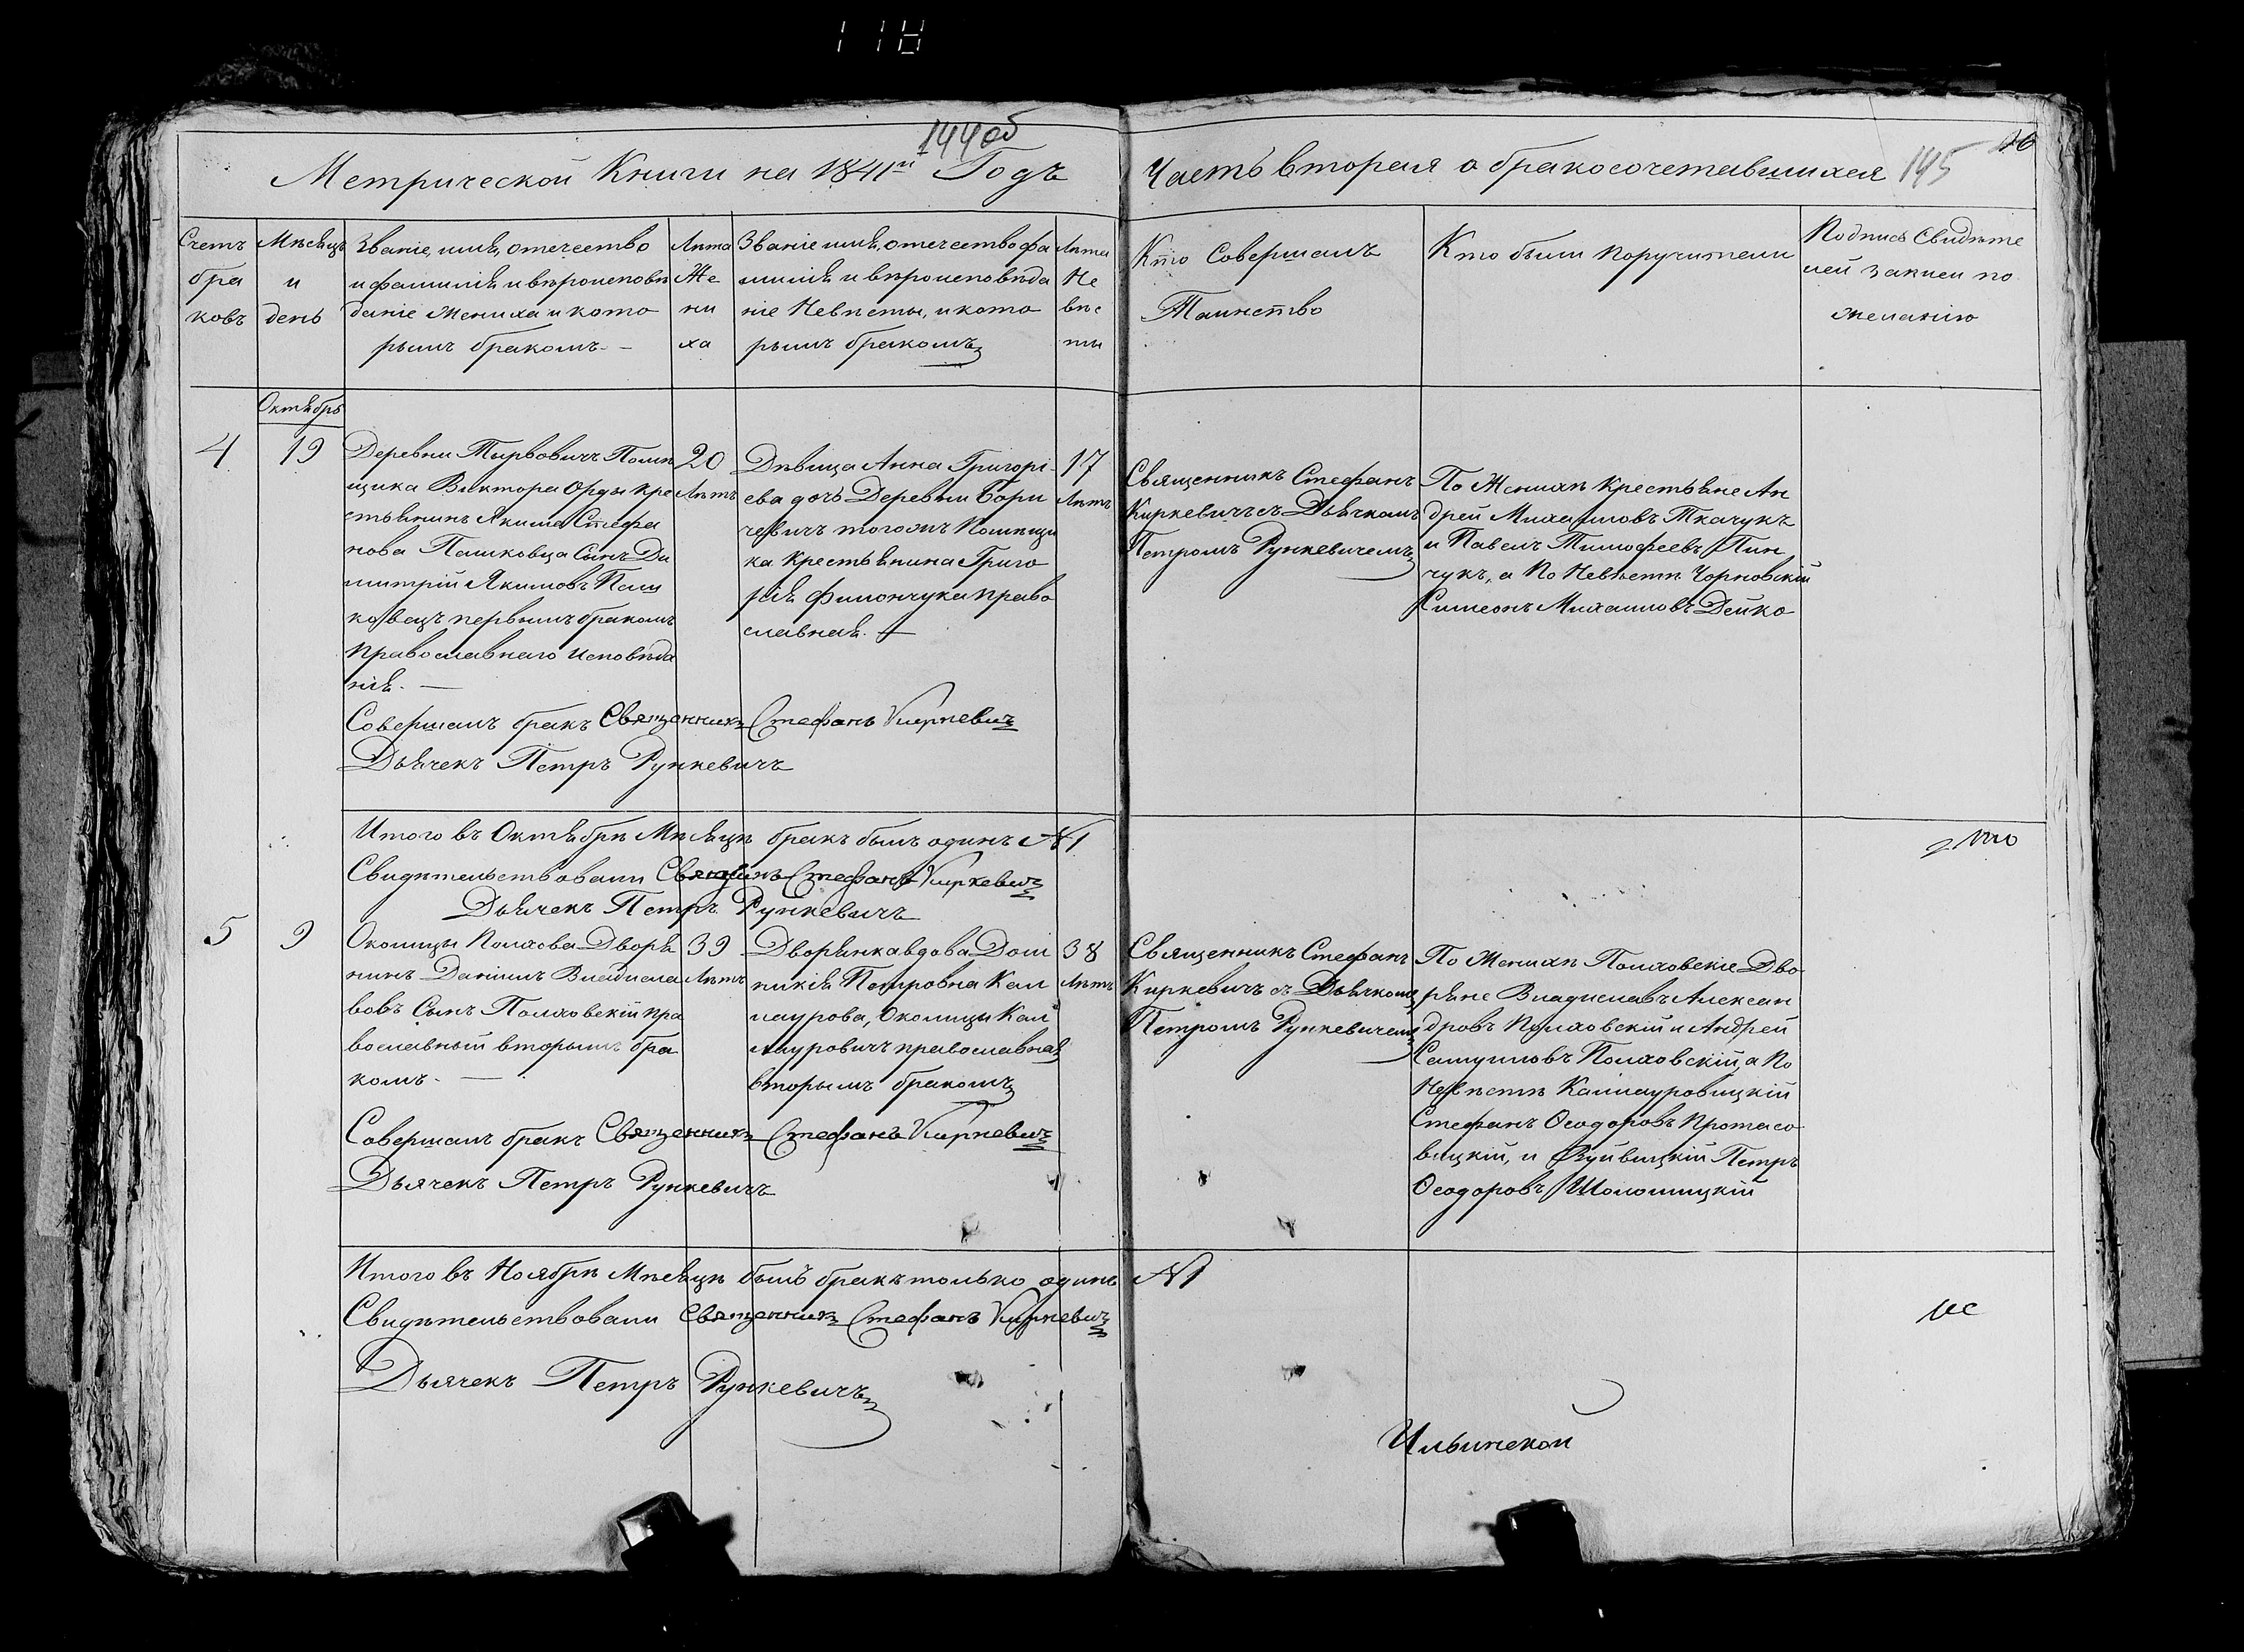 118
144об
Метрической Книги на 1841й Годъ
Часть вторая о бракосочетавшихся 145
Счетъ
бра
ковъ
Мѣсяцъ
и
день
Званіе, имя, отечество
и фамилія и вѣроисповѣ
даніе жениха и кото
рымъ бракомъ. —
Лѣта
Же
ни
ха
Званіе имя, отечество фа
милія и вѣроисповѣда
ніе Невѣсты, и кото
рымъ бракомъ
Лѣта
Не
вѣс
ты
Кто Совершалъ
Таинство
Кто были Поручители
Подпись Свидѣте
лей записи по
желанію
Октябрь
4
19
Деревни Тырвовичъ Помѣ
щика Виктора Орды кре
стьянинъ Якима Стефа
нова Пашковца Сынъ Ди
митрій Якимовъ Паш
ковецъ первымъ бракомъ
Православнаго исповѣда
нія. —
20
Лѣтъ
Дѣвица Анна Григорі
ева дочь Деревни Бори
чевичъ тогожъ Помѣщи
ка Крестьянина Григо
рія Филончука право
славная. —
17
Лѣтъ
Священникъ Стефанъ
Киркевичъ съ Дьячкомъ
Петромъ Рункевичемъ
По Женихѣ Крестьяне Ан
дрей Михаиловъ Ткачукъ
и Павелъ Тимофеевъ Пин
чукъ, а По Невѣстѣ Чорновскій
Симеонъ Михаиловъ Дейко
Совершалъ бракъ Священникъ Стефанъ Киркевичъ
Дьячекъ Петръ Рункевичъ
Итого въ Октябрѣ Мѣсяцѣ бракъ былъ одинъ №1
Свидѣтельствовали Священикъ Стефанъ Киркевичъ
Дьячекъ Петръ Рункевичъ
5
9
Околицы Полхова Дворя
нинъ Даніилъ Владисла
вовъ Сынъ Полховскій пра
вославный вторымъ бра
комъ. —
39
Лѣтъ
Дворянка вдова Доми
никія Петровна Кал
лаурова, Околицы Кал
лауровичъ православная
вторымъ бракомъ
38
Лѣтъ
Священникъ Стефанъ
Киркевичъ съ Дьячкомъ
Петромъ Рункевичемъ
По Женихѣ Полховскіе Дво
ряне Владиславъ Алексан
дровъ Полховскій и Андрей
Самуиловъ Полховскій, а По
Невѣстѣ Каллауровицкій
Стефанъ Ѳеодоровъ Протасо
вицкій, и Вуйвицкій Петръ
Ѳеодоровъ Шоломицкій
Совершалъ бракъ Священникъ Стефанъ Киркевичъ
Дьячекъ Петръ Рункевичъ
Итого въ Ноябрѣ Мѣсяцѣ былъ бракъ только одинъ №1
Свидѣтельствовали Священникъ Стефанъ Киркевичъ
Дьячекъ Петръ Рункевичъ
Ильинской